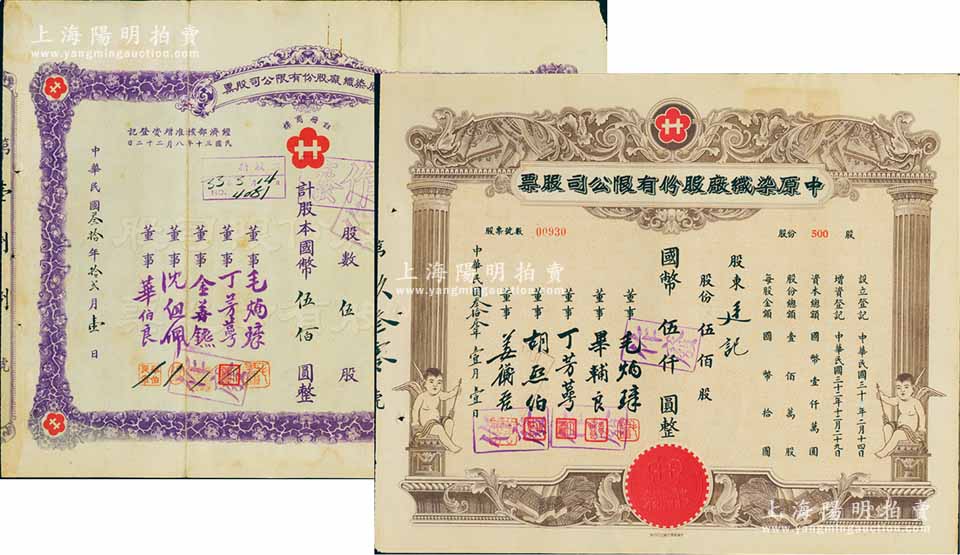 上海陽明拍賣
www.yangmingauction.com
染織廠股份有限公司股票
註冊商標
經濟部核准增資登記
民國三十年八月二十二日
股數 伍 股
計股本國幣 伍佰 圓整
33.3.14
4081
董事 毛炳璋
董事 丁芳萼
董事
董事 沈伯佩
董事 華伯良
中華民國叁拾年拾弍月壹日
上海陽明拍賣
www.yangmingauction.com
中原染織廠股份有限公司股票
股份 500 股
股票號數 00930
設立登記 中華民國三十年二月十四日
增資登記 中華民國三十二年十二月二十九日
資本總額 國幣壹仟萬圓
股份總額 壹佰萬股
每股金額 國幣拾圓
股東 廷記
股份 伍佰股
國幣 伍仟 圓整
董事 毛炳璋
董事 畢輔良
董事 丁芳萼
董事 胡熙伯
董事
中華民國叁拾叁年壹月壹日
上海陽明拍賣
www.yangmingauction.com
上海陽明拍賣
www.yangmingauction.com